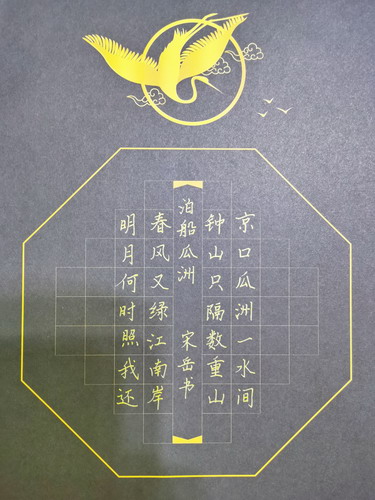 京口瓜洲一水间
钟山只隔数重山
泊船瓜洲 宋岳书
春风又绿江南岸
明月何时照我还